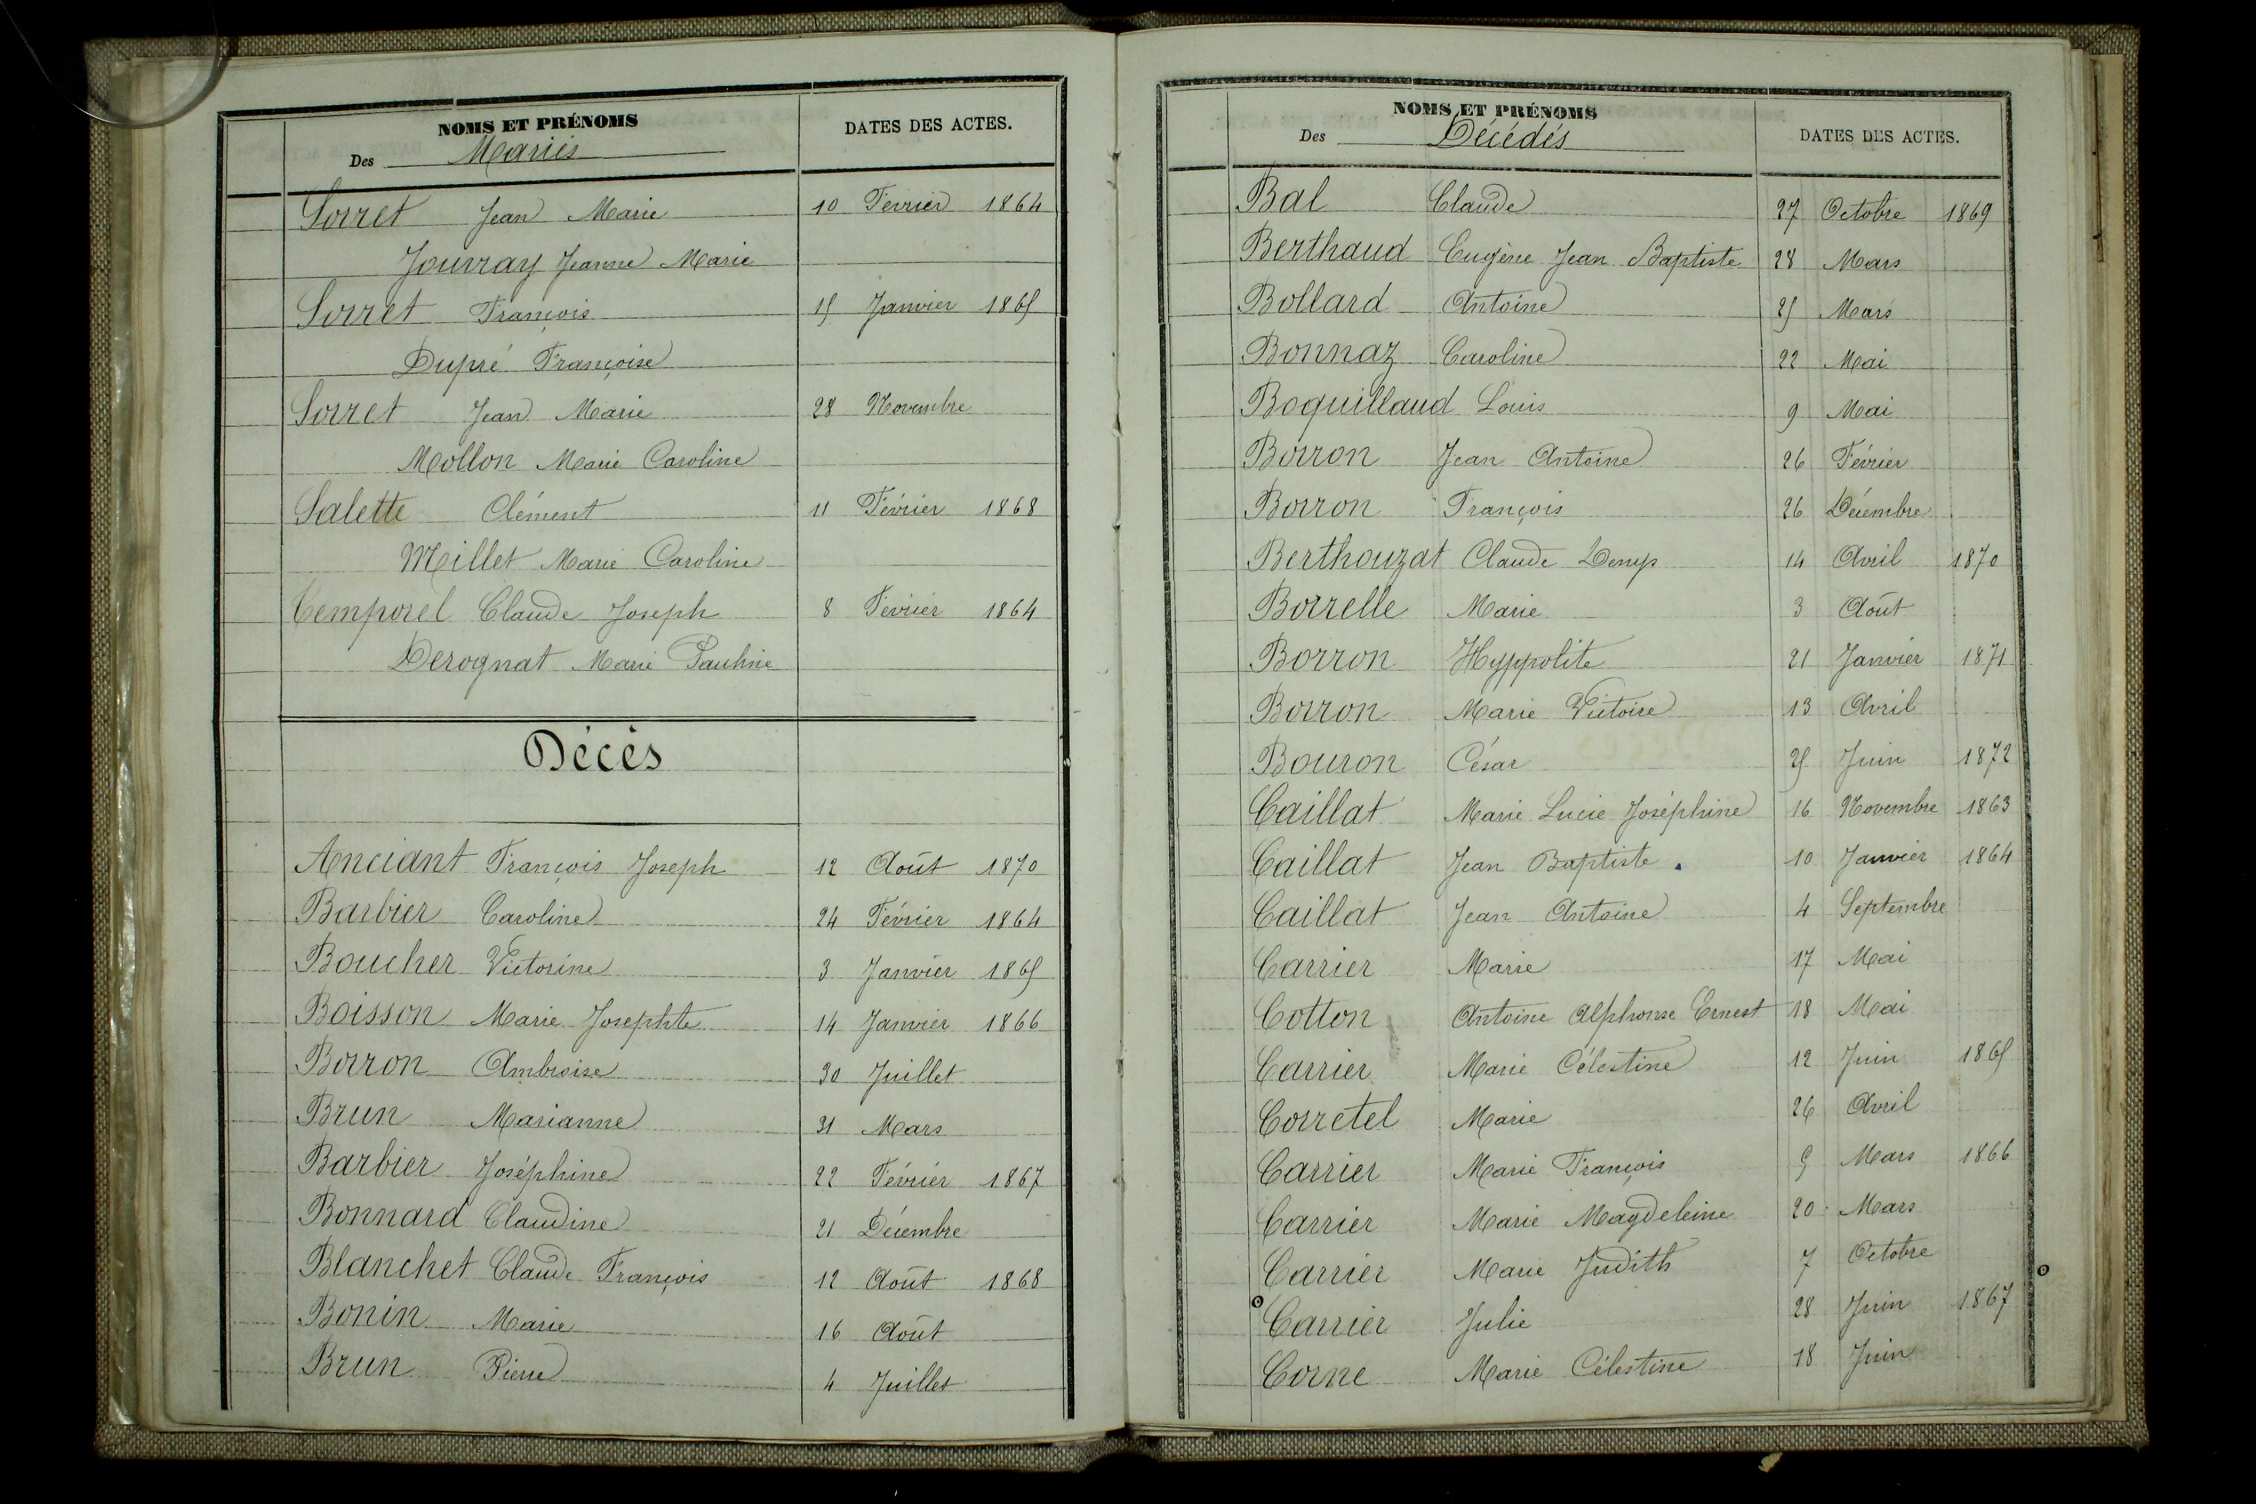 NOMS ET PRÉNOMS
Des Mariés
DATES DES ACTES.
Sorret Jean Marie 10 Février 1864
Jouvray Jeanne Marie
Sorret François 15 Janvier 1865
Dupré Françoise
Sorret Jean Marie 28 Novembre
Mollon Marie Caroline
Salette Clément 11 Février 1868
Meillet Marie Caroline
Temporel Claude Joseph 8 Février 1864
Derognat Marie Pauline
Décès
Anciant François Joseph 12 Août 1870
Barbier Caroline 24 Février 1864
Boucher Victorine 3 Janvier 1865
Boisson Marie Josephte 14 Janvier 1866
Borron Ambroise 30 Juillet
Brun Marianne 31 Mars
Barbier Joséphine 22 Février 1867
Bonnard Claudine 21 Décembre
Blanchet Claude François 12 Août 1868
Bonin Marie 16 Août
Brun Pierre 4 Juillet
NOMS ET PRÉNOMS
Des Décédés
DATES DES ACTES.
Bal Claude 27 Octobre 1869
Berthaud Eugène Jean Baptiste 28 Mars
Bollard Antoine 25 Mars
Bonnaz Caroline 22 Mai
Boquillaud Louis 9 Mai
Borron Jean Antoine 26 Février
Borron François 26 Décembre
Berthouzat Claude Denys 14 Avril 1870
Borrelle Marie 3 Août
Borron Hyppolite 21 Janvier 1871
Borron Marie Victoire 13 Avril
Bouron César 25 Juin 1872
Caillat Marie Lucie Joséphine 16 Novembre 1863
Caillat Jean Baptiste 10 Janvier 1864
Caillat Jean Antoine 4 Septembre
Carrier Marie 17 Mai
Cotton Antoine Alphonse Ernest 18 Mai
Carrier Marie Célestine 12 Juin 1865
Corretel Marie 26 Avril
Carrier Marie François 5 Mars 1866
Carrier Marie Magdeleine 20 Mars
Carrier Marie Judith 7 Octobre
Carrier Julie 28 Juin 1867
Corne Marie Célestine 18 Juin